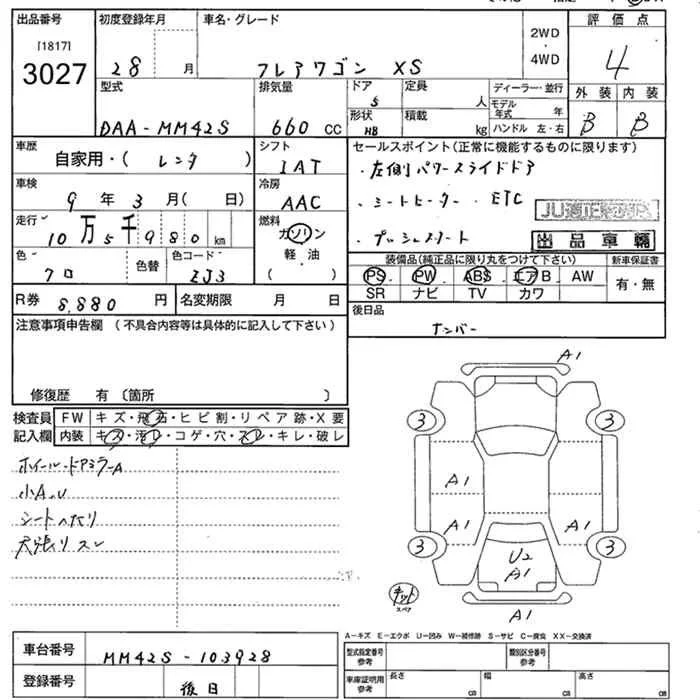 出品番号 初度登録年月 車名・グレード 2WD ・ 4WD 評価点
[1817]
3027 28 月 フレアワゴン XS 4
型式 排気量 ドア 5 定員 人 ディーラー・並行 外装 内装
DAA-MM42S 660 CC 形状 HB 積載 kg モデル年式 年 ハンドル 左・右 B B
車歴 自家用・( レンタ ) シフト IAT セールスポイント(正常に機能するものに限ります)
・左側パワースライドドア
車検 9 年 3 月( 日) 冷房 AAC ・シートヒーター ・ETC
走行 10万5千980 km 燃料 ガソリン 軽・油 ( ) ・プッシュスタート 出品車輛
色 クロ 色替 色コード ZJ3 装備品(純正品に限り丸をつけて下さい) 新車保証書
PS PW ABS エアB AW 有・無
R券 8,880 円 名変期限 月 日 SR ナビ TV カワ
注意事項申告欄 (不具合内容等は具体的に記入して下さい) 後日品
ナンバー
修復歴 有 〔箇所 〕
検査員記入欄 FW キズ・飛石・ヒビ割・リペア跡・X要
内装 キズ・汚レ・コゲ・穴・スレ・キレ・破レ
ホイール・ドアミラーA
小A.U
シートヘタリ
天張リスレ
A1
3 3
A1
A1 A1
3 3
U2
A1
キット スペア
A1
A-キズ E-エクボ U-凹み W-補修跡 S-サビ C-腐食 XX-交換済
車台番号 MM42S-103928 型式指定番号 参考 類別区分番号 参考
登録番号 後日 車庫証明用 参考 長さ cm 幅 cm 高さ cm